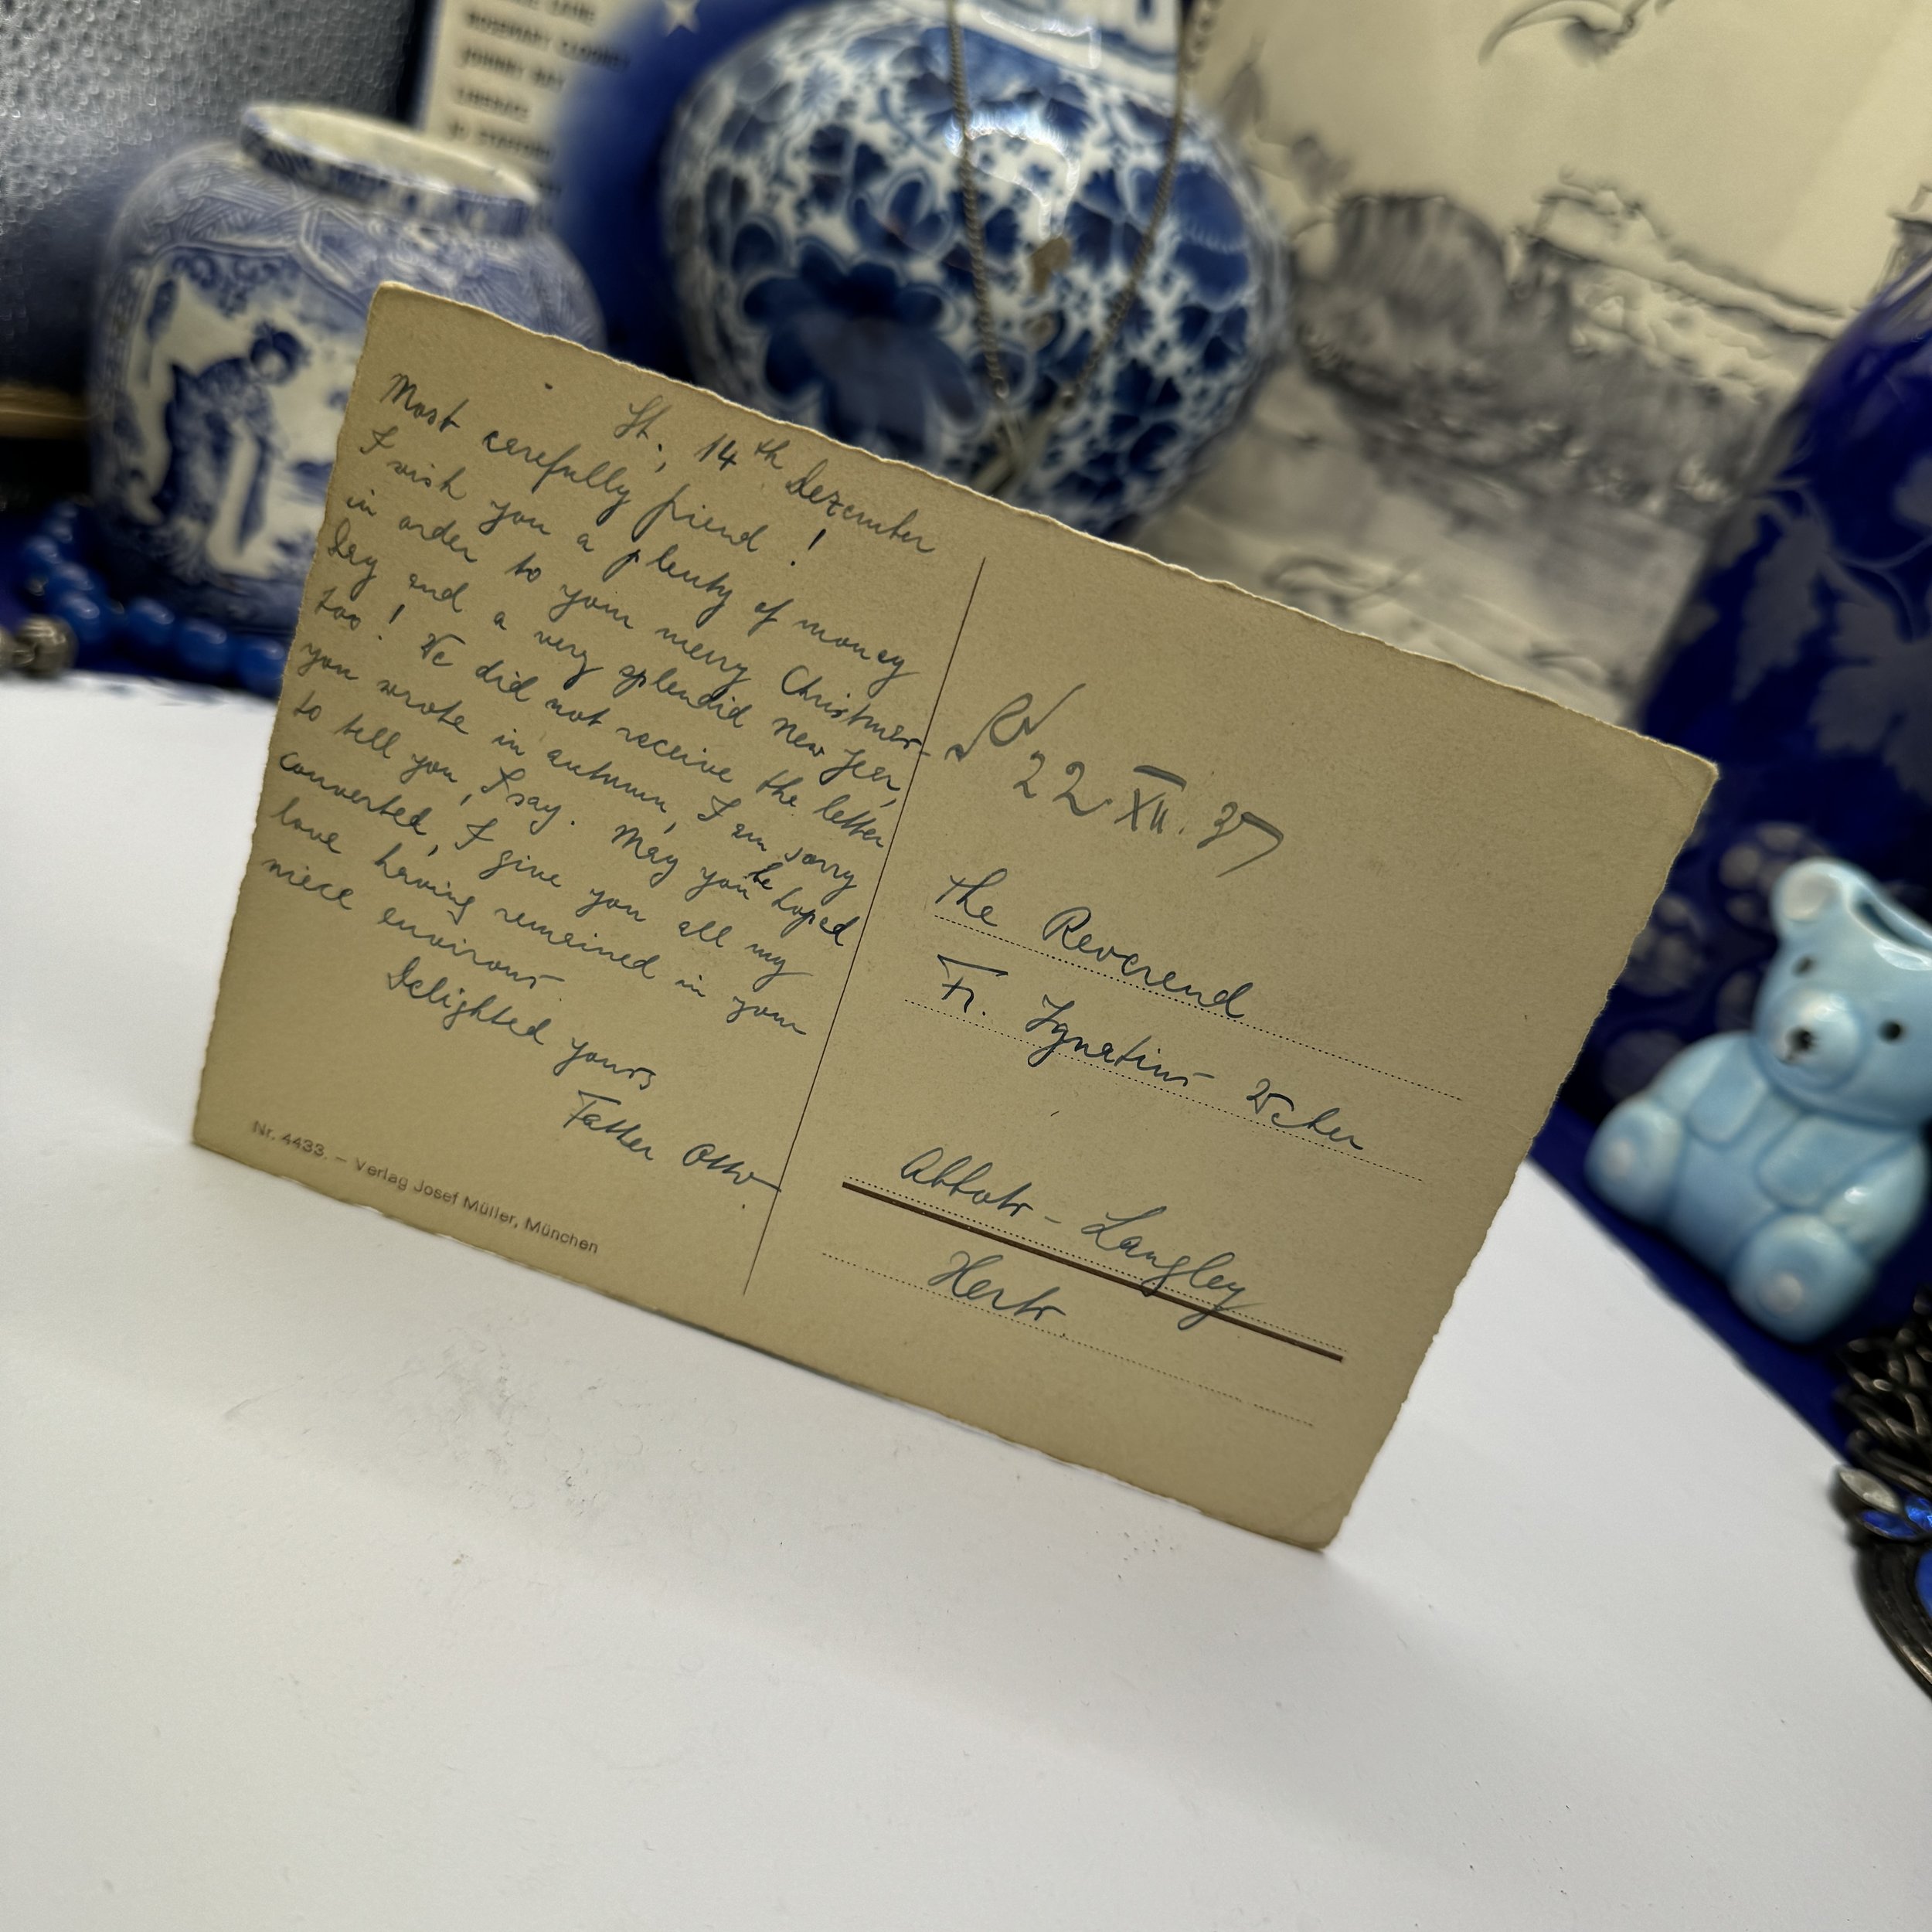 ROSEMARY CLOONEY
St., 14th Dezember
Most carefully friend!
I wish you a plenty of money
in order to your merry Christmas-
Day and a very splendid New Year,
too! We did not receive the letter
you wrote in autumn, I am sorry
to tell you, I say. May you be hoped
converted, I give you all my
love having remained in your
niece environs.
Delighted yours
Father Otto
Nr. 4433. – Verlag Josef Müller, München
22 XII. 37
The Reverend
Fr. Ignatius
Abbots-Langley
Herts.